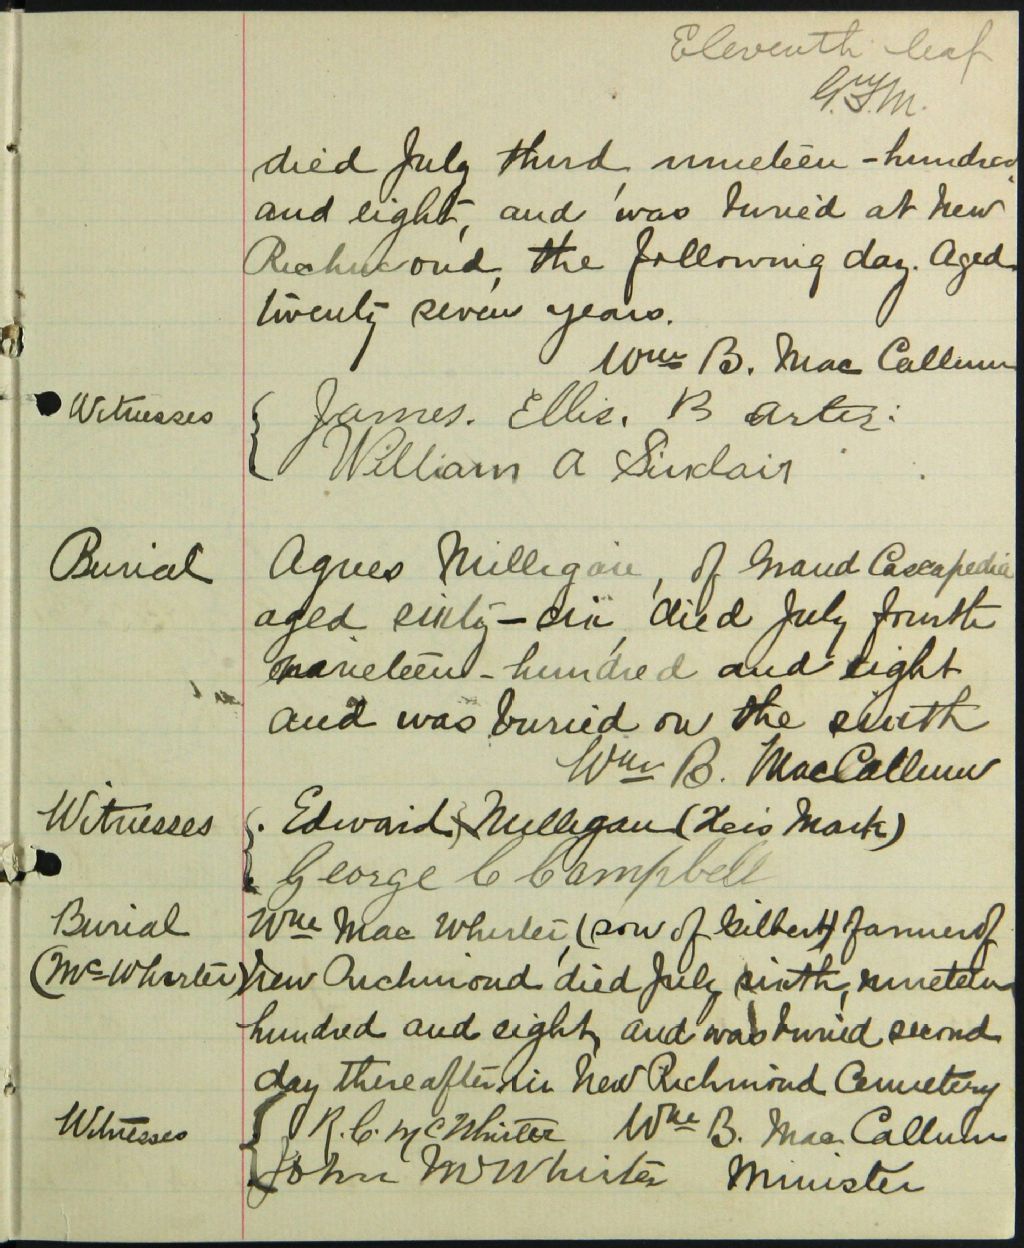 Eleventh leaf
died July third nineteen-hundred
and eight, and was buried at New
Richmond, the following day. Aged
twenty seven years.
Wm B. Mac Callum
Witnesses { James. Ellis. B
William A Sinclair
Burial Agnes Milligan, of Grand Cascapedia
aged sixty-six, died July fourth
nineteen-hundred and eight
and was buried on the sixth
Wm B. MacCallum
Witnesses { Edward Milligan (X his Mark)
George C Campbell
Burial Wm Mac Whirter, (son of Gilbert) farmer of
(Mc-Whirter) New Richmond died July sixth, nineteen
hundred and eight, and was buried second
day thereafter in New Richmond Cemetery
Witnesses { R. C. McWhirter Wm B. Mac Callum
John McWhirter Minister